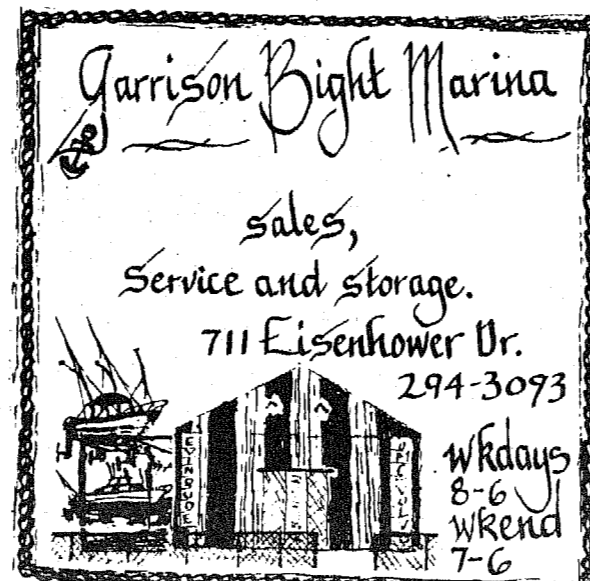 Garrison Bight Marina
sales,
Service and storage.
711 Eisenhower Dr.
294-3093
EVINRUDE
wkdays
8-6
wkend
7-6